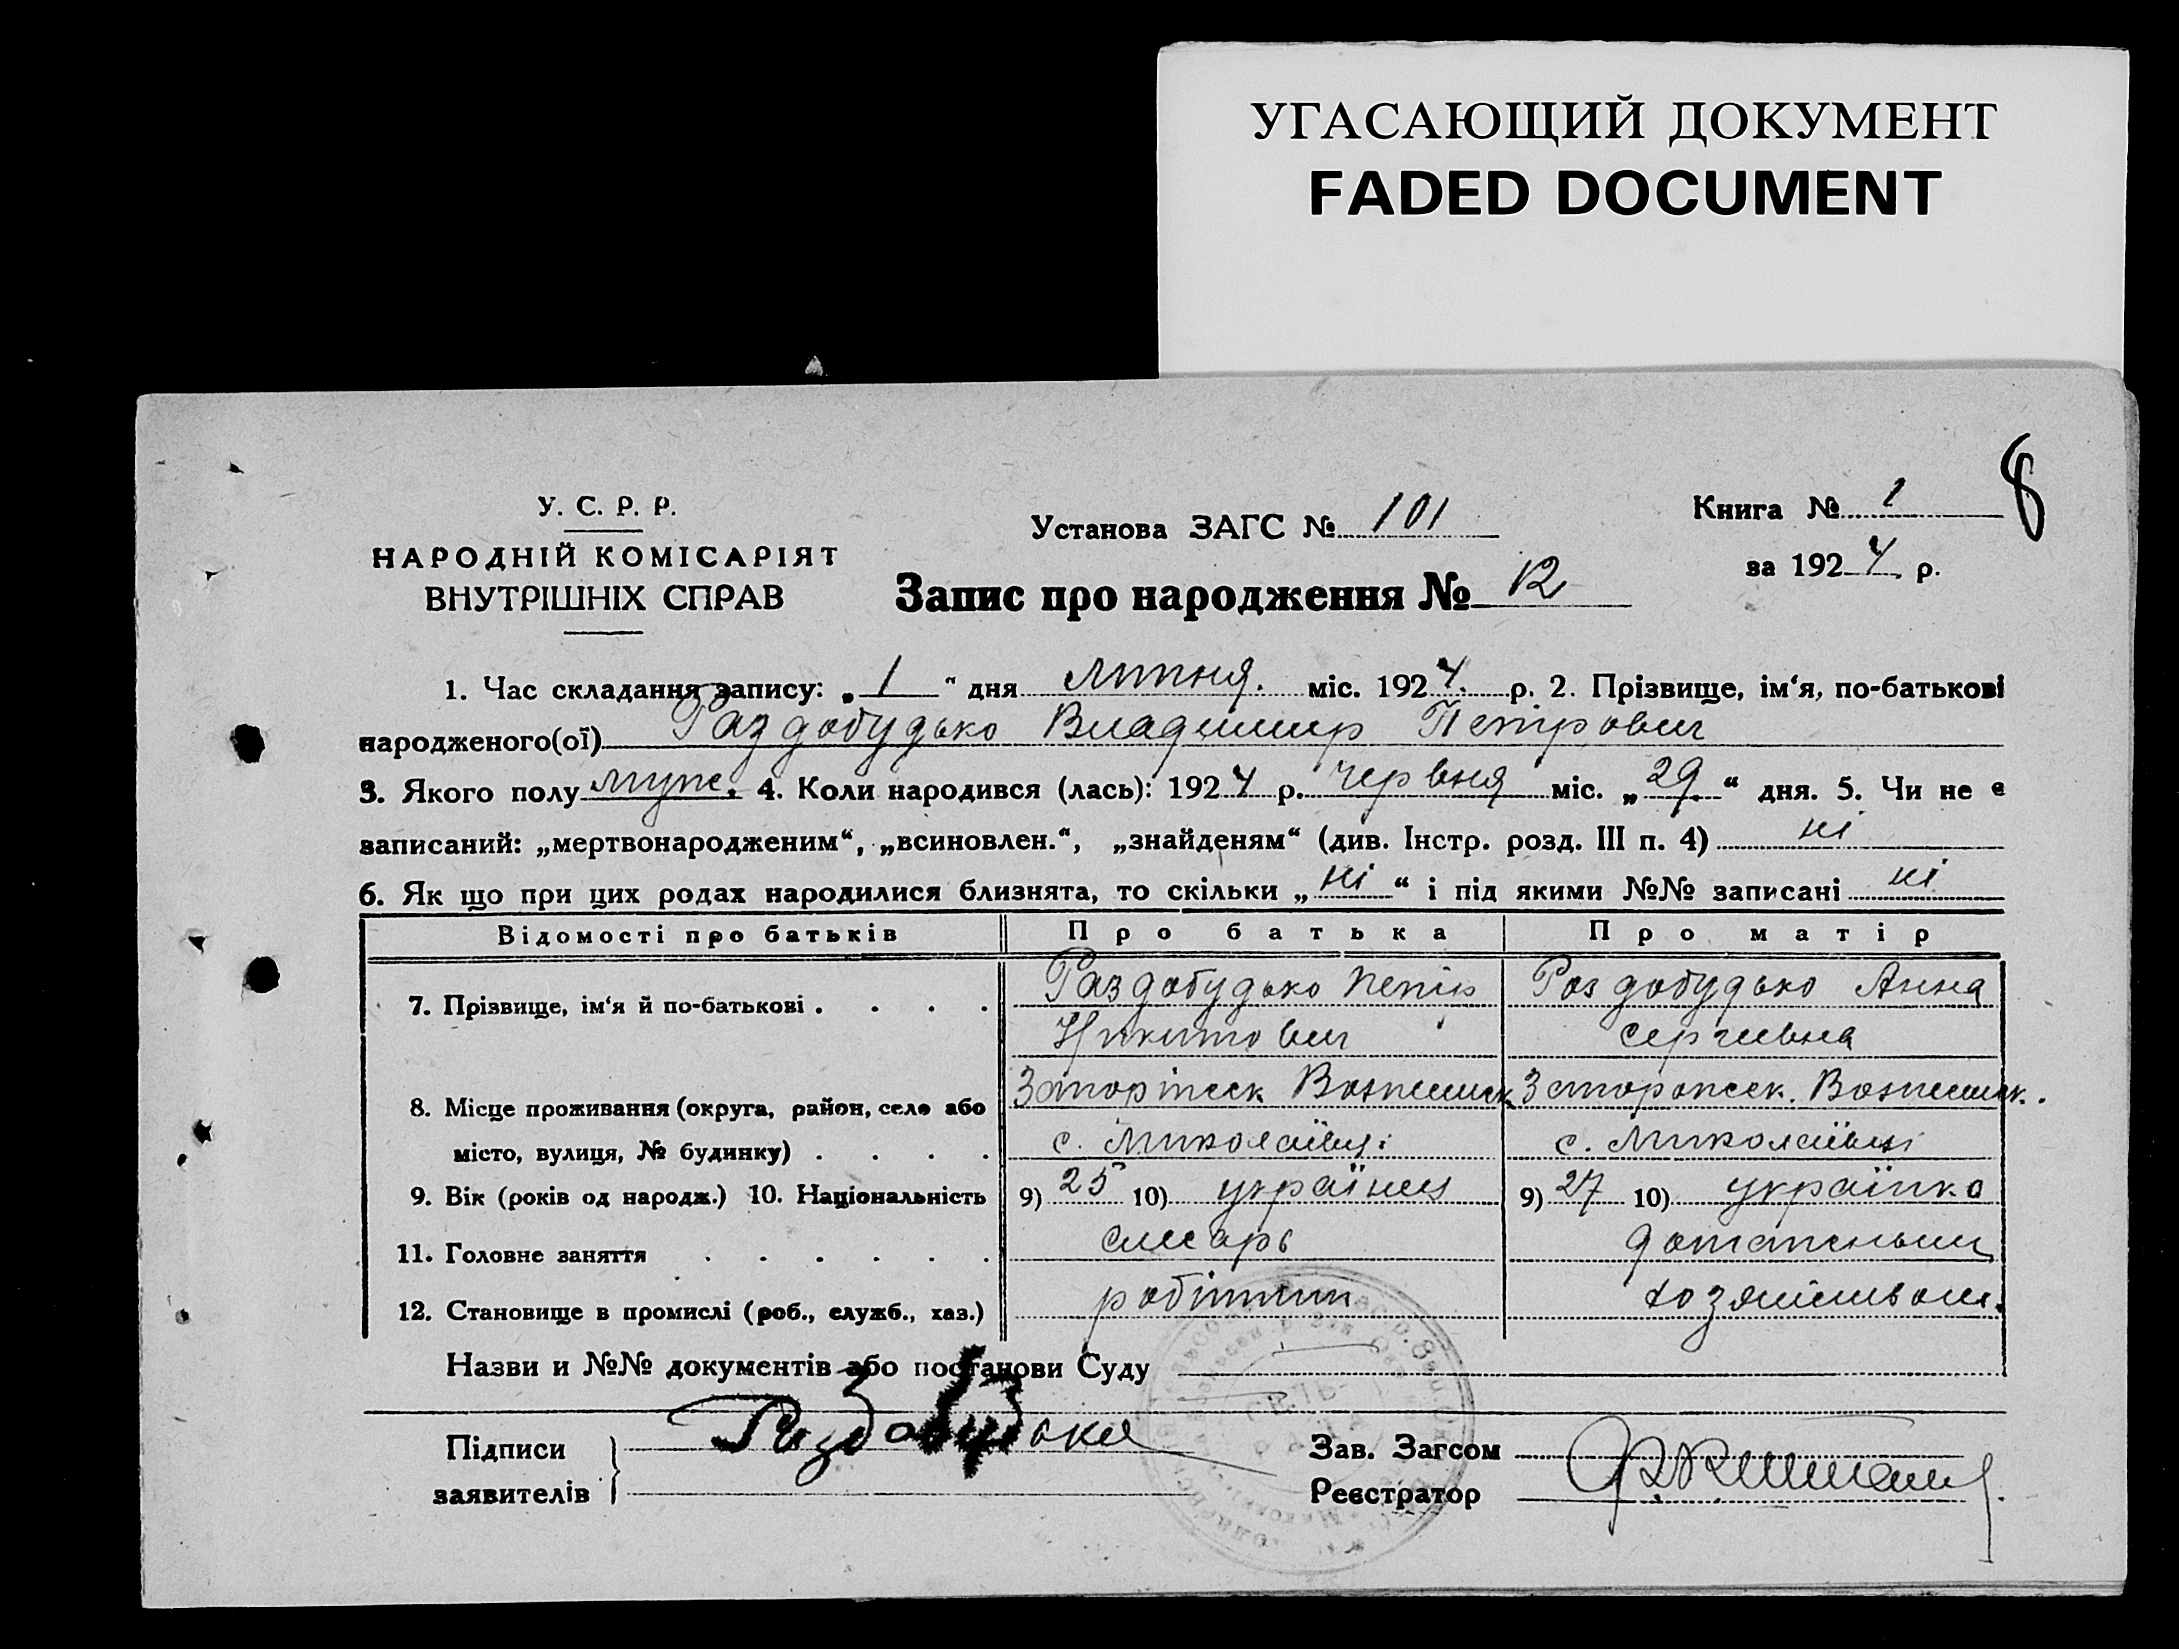 УГАСАЮЩИЙ ДОКУМЕНТ
FADED DOCUMENT
8
У. С. Р. Р.
НАРОДНІЙ КОМІСАРІЯТ
ВНУТРІШНІХ СПРАВ
Установа ЗАГС № 101
Запис про народження № 12
Книга № 1
за 1924 р.
1. Час складання запису: „1“ дня липня. міс. 1924. р. 2. Прізвище, ім‘я, по-батькові
народженого(ої) Раздобудько Владимир Петрович
3. Якого полу муж. 4. Коли народився (лась): 1924 р. червня міс. „29“ дня. 5. Чи не є
записаний: „мертвонародженим“, „всиновлен.“, „знайденям“ (див. Інстр. розд. III п. 4) ні
6. Як що при цих родах народилися близнята, то скільки „ні“ і під якими №№ записані ні
Відомості про батьків Про батька Про матір
7. Прізвище, ім‘я й по-батькові . . . . Раздобудько Петро Роздобудько Анна
Никитович Сергиевна
8. Місце проживання (округа, район, село або
місто, вулиця, № будинку) . . . . с. Миколаївці с. Миколаївці
9. Вік (років од народж.) 10. Національність 9) 25 10) українец 9) 27 10) українка
11. Головне заняття . . . . . . слесарь
12. Становище в промислі (роб., служб., хаз.) робітник хозяйством.
Назви и №№ документів або постанови Суду
Підписи
заявителів
Раздобудько
Зав. Загсом
Реєстратор